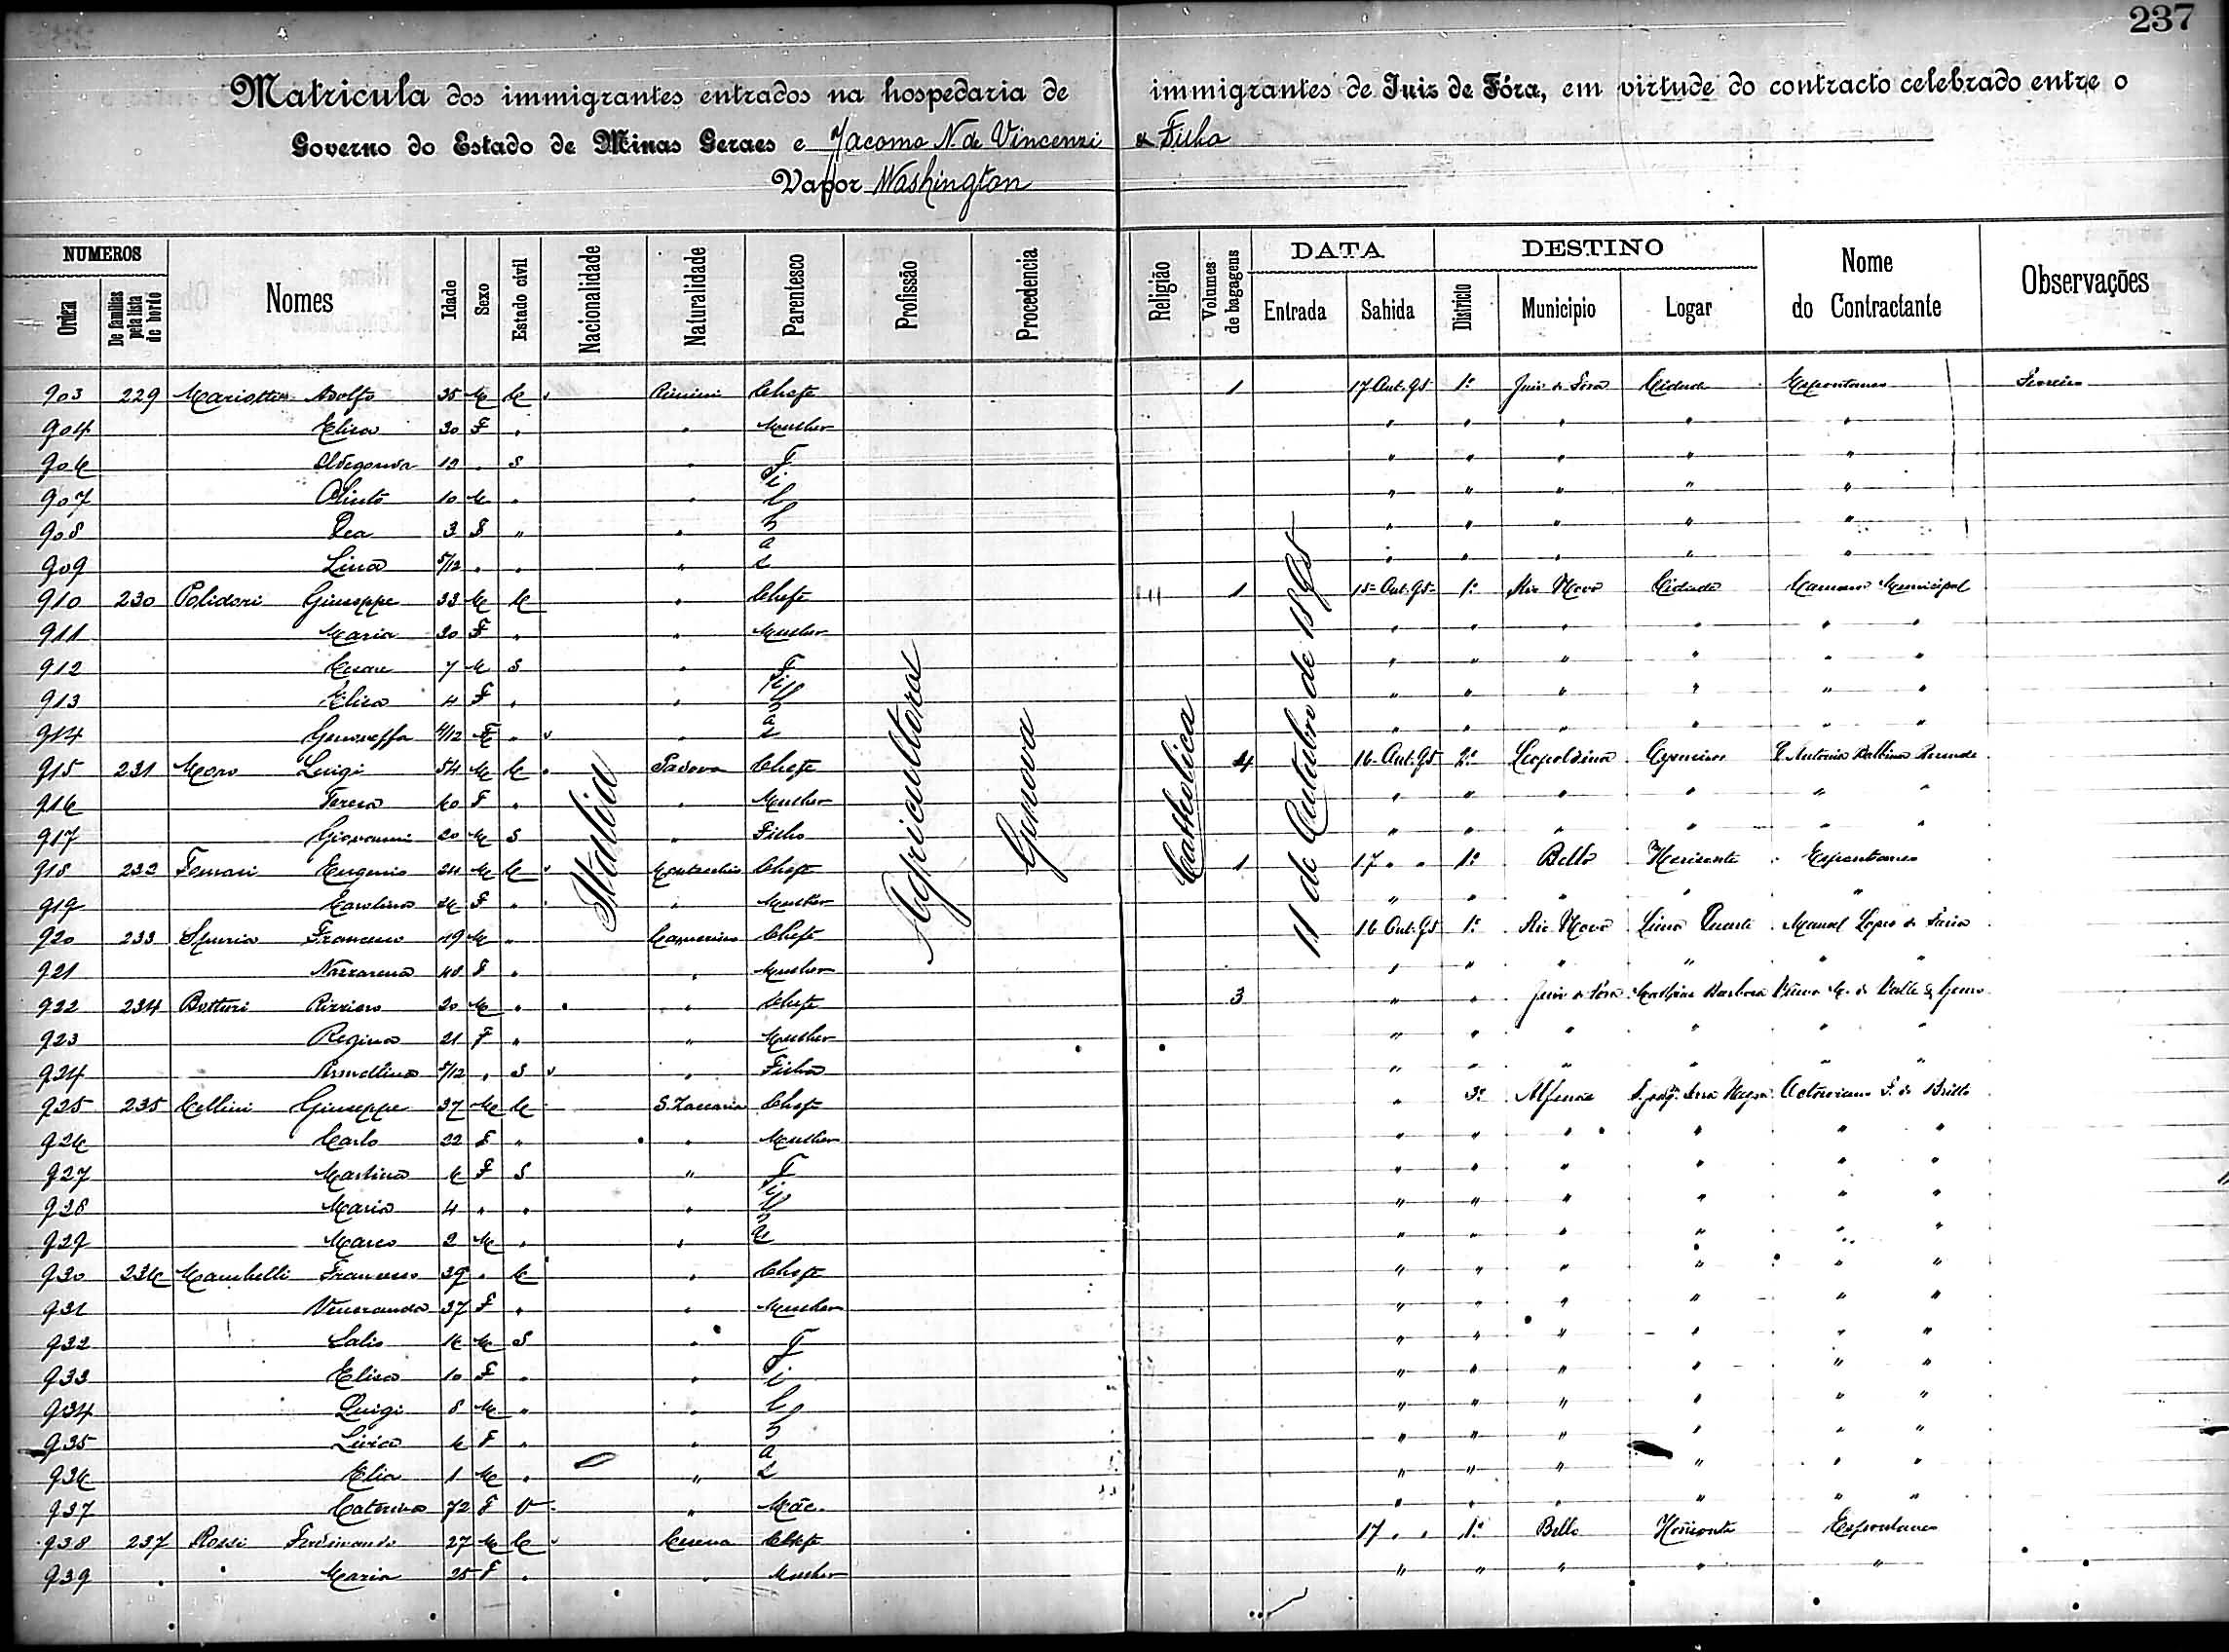 237
Matricula dos immigrantes entrados na hospedaria de immigrantes de Juiz de Fóra, em virtude do contracto celebrado entre o
Governo do Estado de Minas Geraes e Jacomo N. de Vincenzi & Filho
Vapor Washington
NUMEROS Nomes Idade Sexo Estado civil Nacionalidade Naturalidade Parentesco Profissão Procedencia Religião Volumes de bagagens DATA DESTINO Nome do Contractante Observações
Ordem De familias pela lista de bordo Entrada Sahida Districto Municipio Logar
Italia Agricultora Genova Catholica 11 de Outubro de 1895
903 229 Adolfo 35 M C Rimini Chefe 1 17 Out. 95 1º Juiz de Fora Cidade Espontaneo
904 Elisa 30 F " " Mulher " " " " "
906 12 " S " " " " " "
907 Olinto 10 M " " " " " " "
908 3 F " " " " " " "
909 Lina 5/12 " " " " " " " "
Filhas
910 230 Polidori Giuseppe 33 M C " Chefe 1 15 Out. 95 1º Rio Novo Cidade Camara Municipal
911 Maria 30 F " " Mulher " " " " " "
912 Cesare 7 M S " " " " " " "
913 Elisa 4 F " " " " " " " "
914 4/12 F " " " " " " " "
Filhas
915 231 Moro Luigi 54 M C Padova Chefe 4 16 Out. 95 2º Leopoldina Antonio Balbino Rezende
916 Teresa 60 F " " Mulher " " " " " "
917 Giovanni 20 M S " Filho " " " " " "
918 232 Ferrari Eugenio 24 M C Chefe 1 17 " " 1º Bello Horisonte Espontaneo
919 Carolina 26 F " " Mulher " " " " "
920 233 Francesco 49 M " Camerino Chefe 16 Out. 95 1º Rio Novo Lima Duarte Manoel Lopes de Faria
921 Nazzarena 48 F " " Mulher " " " " " "
922 234 Botturi 20 M " " Chefe 3 " " Juiz de Fora Mathias Barbosa
923 Regina 21 F " " Mulher " " " " " "
924 Armellina 5/12 " S " Filha " " " " " "
925 235 Cellini Giuseppe 37 M C S. Zaccaria Chefe " 3º Alfenas
926 Carlo 22 F " " Mulher " " " " " "
927 Martina 6 F S " " " " " " "
928 Maria 4 " " " " " " " " "
929 Marco 2 M " " " " " " " "
930 236 Francesco 39 " C " Chefe " " " " " "
931 Veneranda 37 F " " Mulher " " " " " "
932 16 M S " " " " " " "
933 Elisa 10 F " " " " " " " "
934 Luigi 8 M " " " " " " " "
935 6 F " " " " " " " "
936 Elia 1 M " " " " " " " "
Filhas
937 Caterina 72 F V " Mãe " " " " " "
938 237 Rossi Ferdinando 27 M C Cesena Chefe 17 " " 1º Bello Horisonte Espontaneo
939 Maria 25 F " " Mulher " " " " "